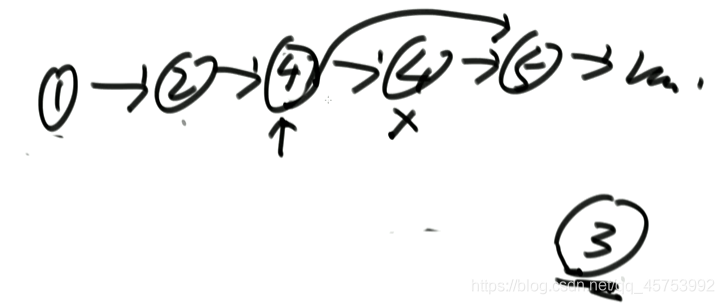 ① → ② → ④ → ④ → ⑤ →
↑ ×
③
https://blog.csdn.net/qq_45753992